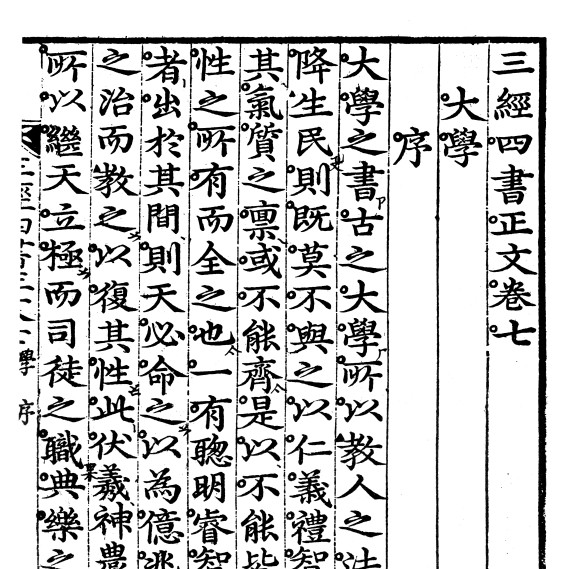 三經四書正文卷七
大學
序
大學之書古之大學所以教人之法
降生民則既莫不與之以仁義禮智
其氣質之稟或不能齊是以不能皆
性之所有而全之也一有聰明睿智
者出於其間則天必命之以為億兆
之治而教之以復其性此伏羲神農
所以繼天立極而司徒之職典樂之
學 序